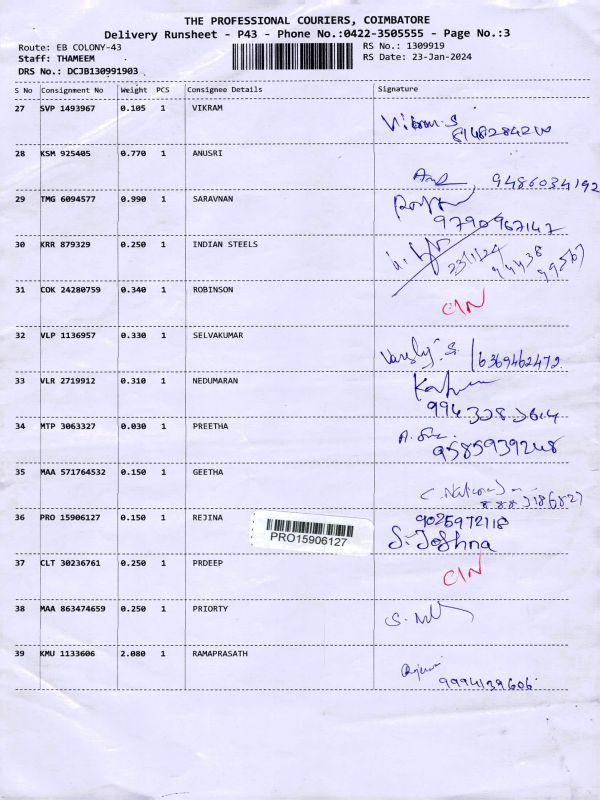 THE PROFESSIONAL COURIERS, COIMBATORE
Delivery Runsheet - P43 - Phone No.:0422-3505555 - Page No.:3
Route: EB COLONY-43 RS No.: 1309919
Staff: THAMEEM RS Date: 23-Jan-2024
DRS No.: DCJB130991903
S No Consignment No Weight PCS Consignee Details Signature
27 SVP 1493967 0.105 1 VIKRAM
Vikram.S
28 KSM 925405 0.770 1 ANUSRI
9486034192
29 TMG 6094577 0.990 1 SARAVNAN
9790967147
30 KRR 879329 0.250 1 INDIAN STEELS
23/1/24
31 COK 24280759 0.340 1 ROBINSON
C/N
32 VLP 1136957 0.330 1 SELVAKUMAR
6369462472
33 VLR 2719912 0.310 1 NEDUMARAN
34 MTP 3063327 0.030 1 PREETHA
9585939248
35 MAA 571764532 0.150 1 GEETHA
36 PRO 15906127 0.150 1 REJINA
9025972118
S. Joshna
PRO15906127
37 CLT 30236761 0.250 1 PRDEEP
C/N
38 MAA 863474659 0.250 1 PRIORTY
39 KMU 1133606 2.080 1 RAMAPRASATH
9994139606